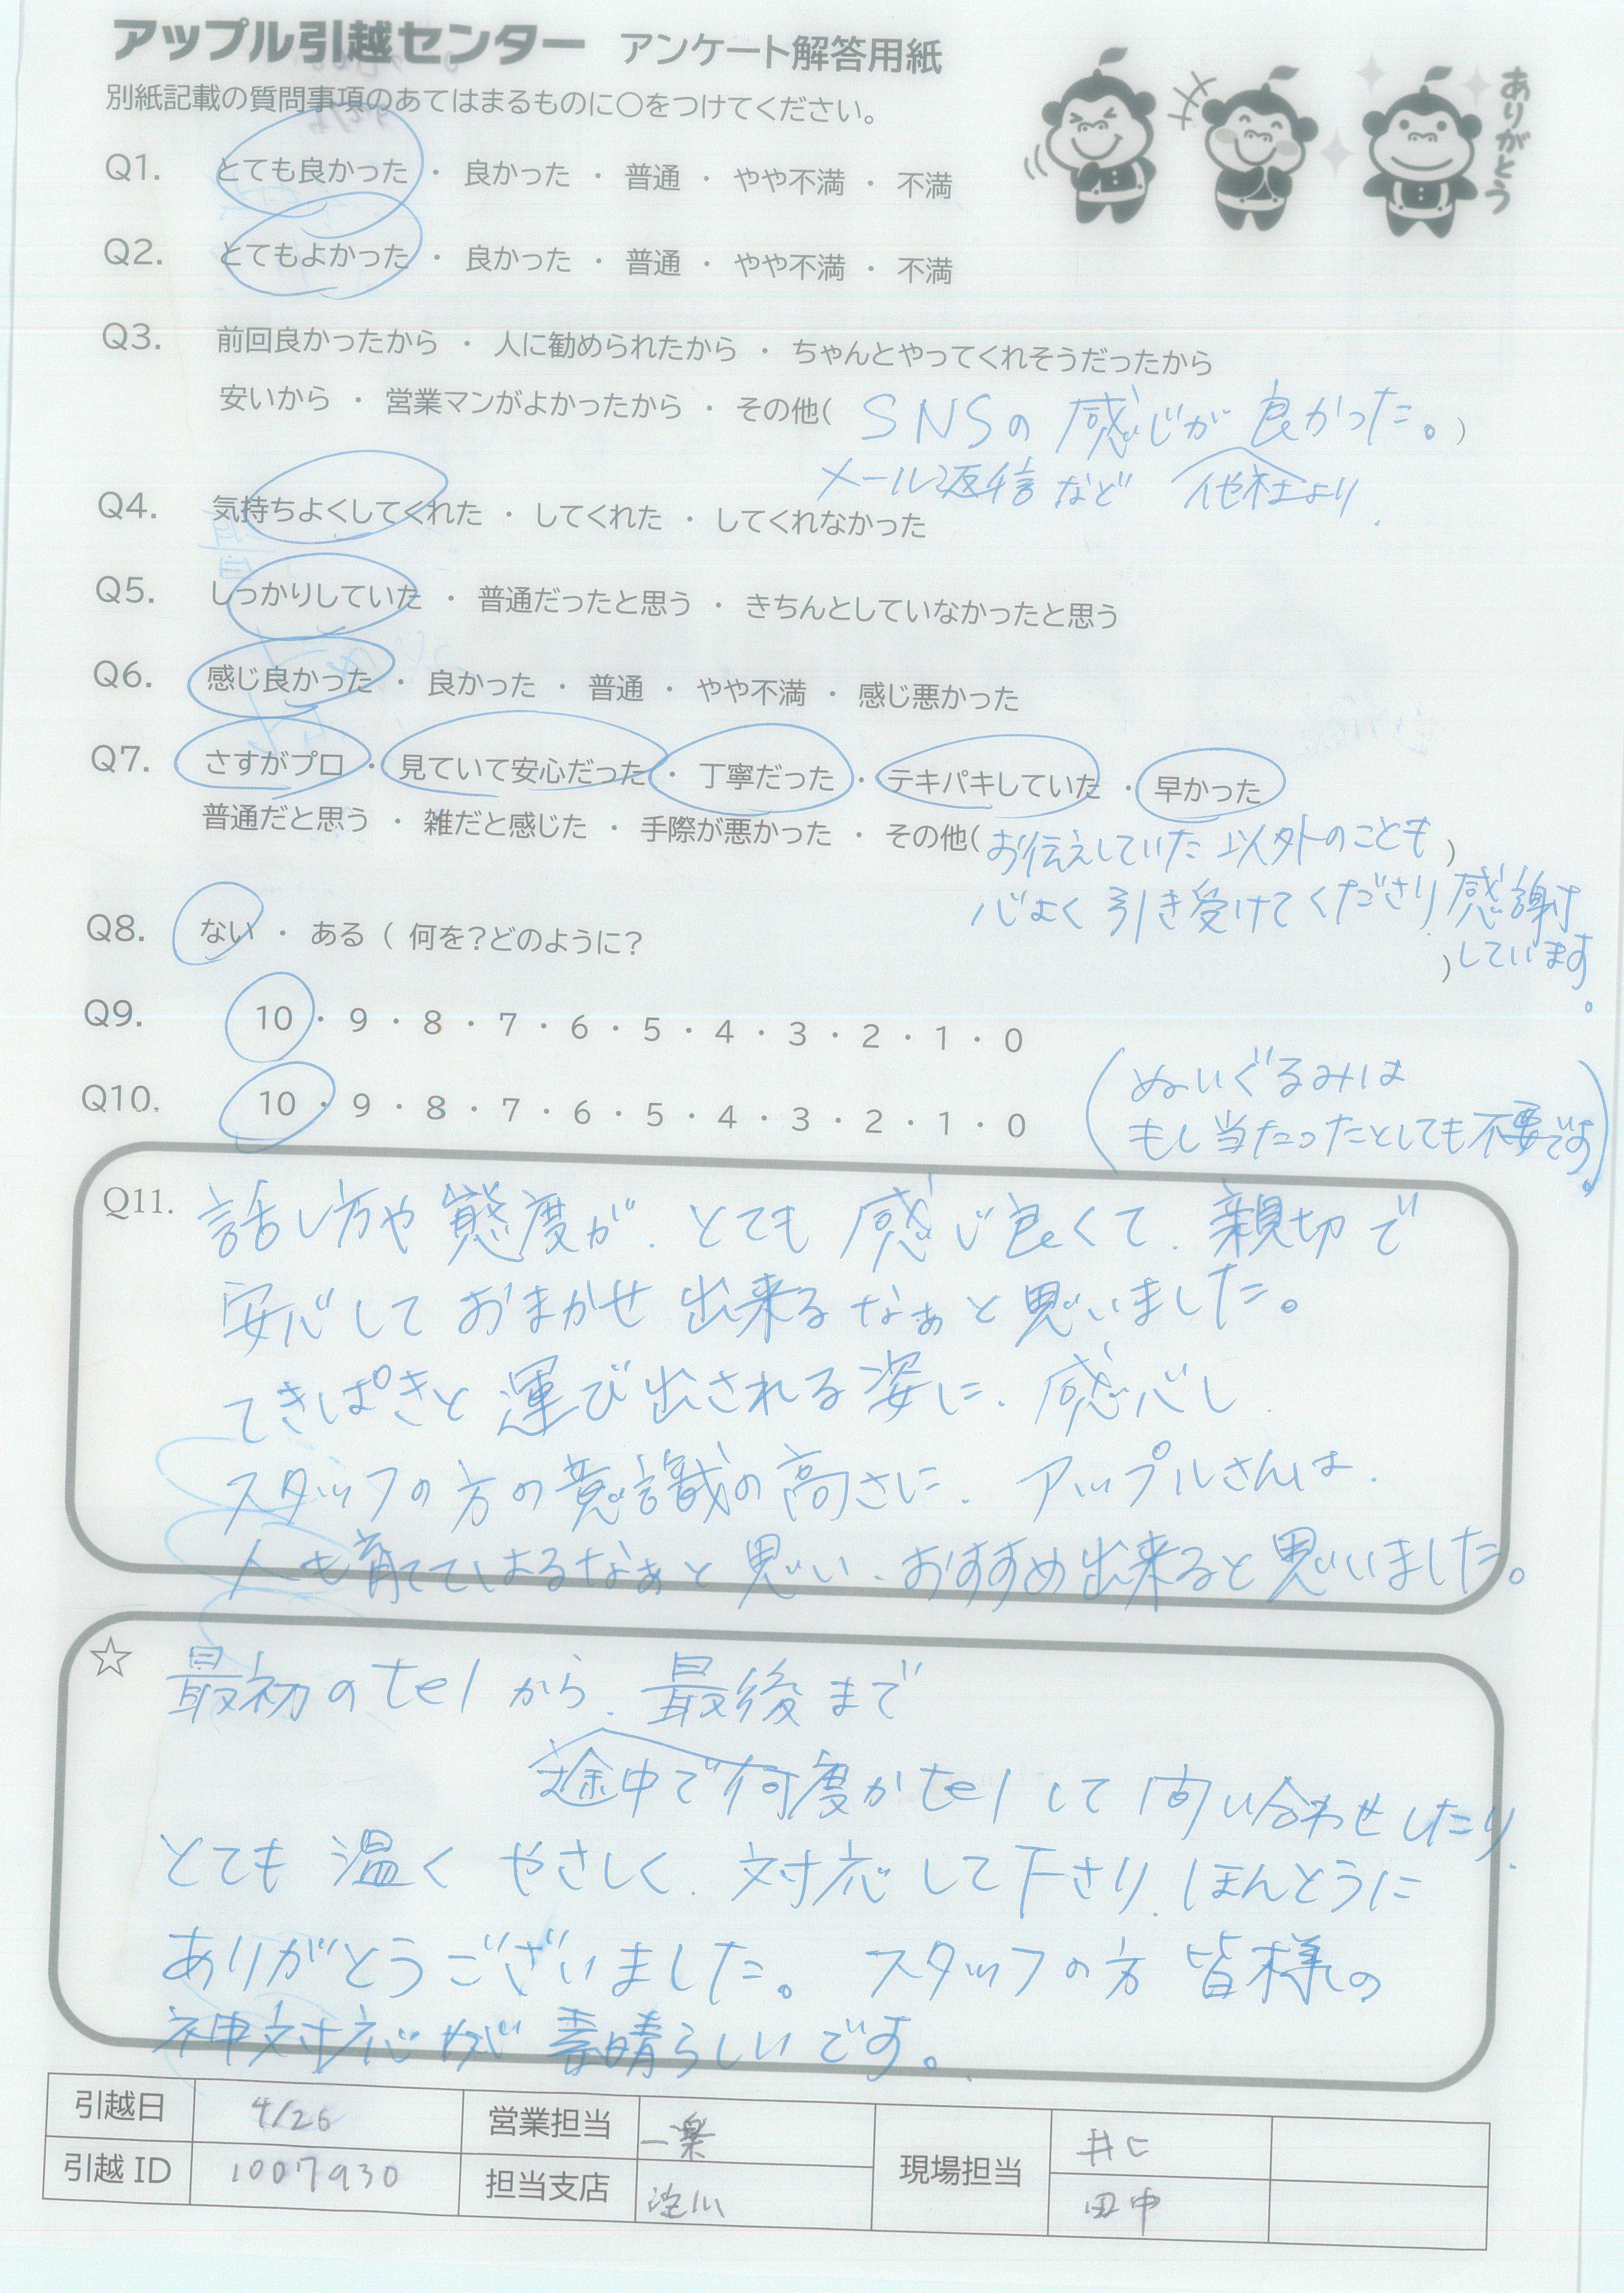 アップル引越センター アンケート解答用紙
ありがとう
別紙記載の質問事項のあてはまるものに○をつけてください。
Q1. とても良かった ・ 良かった ・ 普通 ・ やや不満 ・ 不満
Q2. とてもよかった ・ 良かった ・ 普通 ・ やや不満 ・ 不満
Q3. 前回良かったから ・ 人に勧められたから ・ ちゃんとやってくれそうだったから
安いから ・ 営業マンがよかったから ・ その他( SNSの感じが良かった。 )
メール返信など 他社より
Q4. 気持ちよくしてくれた ・ してくれた ・ してくれなかった
Q5. しっかりしていた ・ 普通だったと思う ・ きちんとしていなかったと思う
Q6. 感じ良かった ・ 良かった ・ 普通 ・ やや不満 ・ 感じ悪かった
Q7. さすがプロ ・ 見ていて安心だった ・ 丁寧だった ・ テキパキしていた ・ 早かった
普通だと思う ・ 雑だと感じた ・ 手際が悪かった ・ その他( お伝えしていた以外のことも )
心よく引き受けてくださり感謝
しています。
Q8. ない ・ ある ( 何を?どのように? )
Q9. 10 ・ 9 ・ 8 ・ 7 ・ 6 ・ 5 ・ 4 ・ 3 ・ 2 ・ 1 ・ 0
Q10. 10 ・ 9 ・ 8 ・ 7 ・ 6 ・ 5 ・ 4 ・ 3 ・ 2 ・ 1 ・ 0
(ぬいぐるみは
もし当たったとしても不要です。)
Q11. 話し方や態度が、とても感じ良くて、親切で
安心しておまかせ出来るなぁと思いました。
てきぱきと運び出される姿に、感心し、
スタッフの方の意識の高さに、アップルさんは、
人も育ててはるなぁと思い、おすすめ出来ると思いました。
☆ 最初のtelから、最後まで
途中で何度かtelして問い合わせしたり、
とても温くやさしく、対応して下さり、ほんとうに
ありがとうございました。スタッフの方皆様の
神対応が素晴らしいです。
引越日 4/26 営業担当 一楽 現場担当 井上
引越ID 1007930 担当支店 淀川 田中